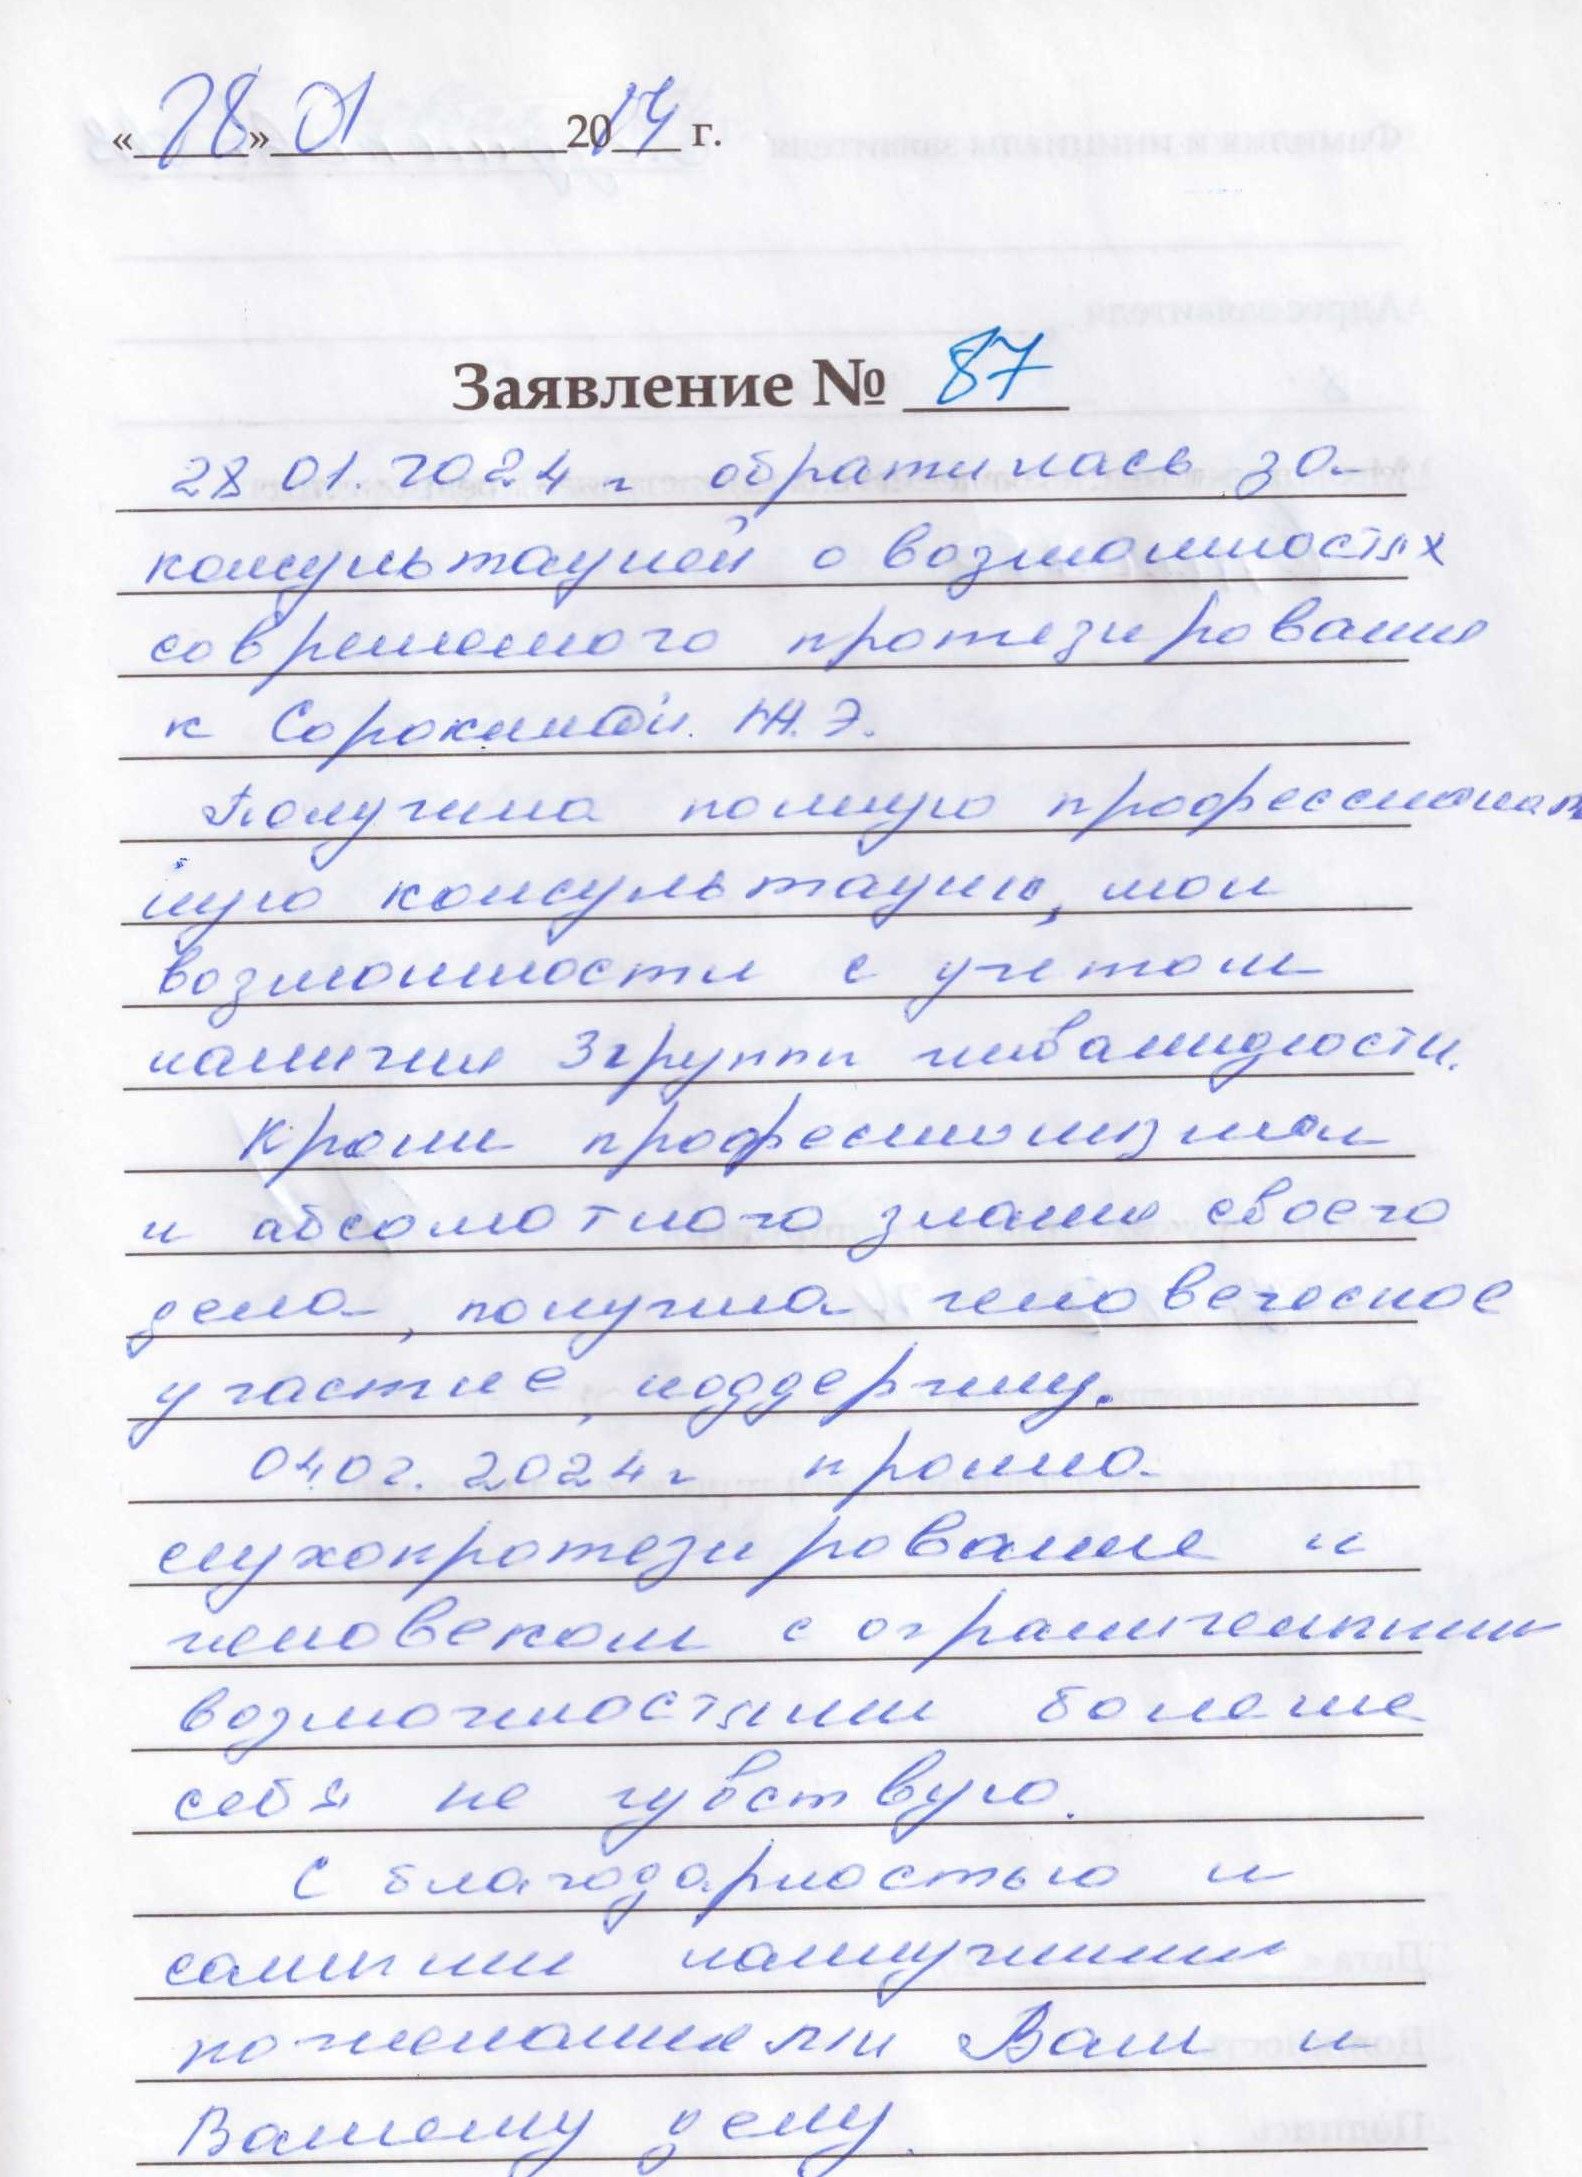 «28» 01 2024 г.
Заявление № 87
28 01. 2024 г обратилась за
консультацией о возможностях
современного протезирования
к Сорокиной. Ж. Э.
Получила полную профессиональ
ную консультацию, мои
возможности с учетом
наличия 3 группы инвалидности.
Кроме профессионализма
и абсолютного знания своего
дела, получила человеческое
участие, поддержку.
04 02. 2024 г прошла
слухопротезирование и
человеком с ограниченными
возможностями больше
себя не чувствую.
С благодарностью и
самыми наилучшими
пожеланиями Вам и
Вашему делу.